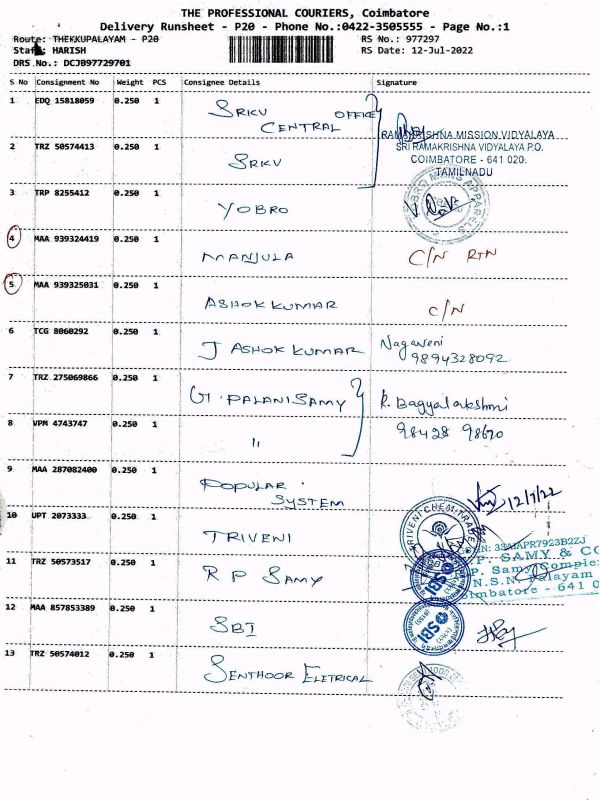 THE PROFESSIONAL COURIERS, Coimbatore
Delivery Runsheet - P20 - Phone No.:0422-3505555 - Page No.:1
Route: THEKKUPALAYAM - P20
RS No.: 977297
Staff: HARISH
RS Date: 12-Jul-2022
DRS No.: DCJB97729701
S No Consignment No Weight PCS Consignee Details Signature
1 EDQ 15818059 0.250 1 SRKV OFFICE
CENTRAL
RAMAKRISHNA MISSION VIDYALAYA
SRI RAMAKRISHNA VIDYALAYA P.O.
COIMBATORE - 641 020.
TAMILNADU
2 TRZ 50574413 0.250 1 SRKV
3 TRP 8255412 0.250 1 YOBRO
4 MAA 939324419 0.250 1 MANJULA C/N RTN
5 MAA 939325031 0.250 1 ASHOK KUMAR C/N
6 TCG 8060292 0.250 1 J ASHOK KUMAR Nagaveni
9894328092
7 TRZ 275069866 0.250 1 G. PALANISAMY R. Bagyalakshmi
8 VPM 4743747 0.250 1 " 98428 98670
9 MAA 287082400 0.250 1 POPULAR SYSTEM 12/7/22
10 UPT 2073333 0.250 1 TRIVENI
TRIVENI CHEM TRADE
11 TRZ 50573517 0.250 1 R P SAMY
33AIAPR7923B2ZJ
P. SAMY & CO
P. Samy Complex
N.S.N. Palayam
Coimbatore - 641 0
12 MAA 857853389 0.250 1 SBI
SBI
SBI
13 TRZ 50574012 0.250 1 SENTHOOR ELETRICAL